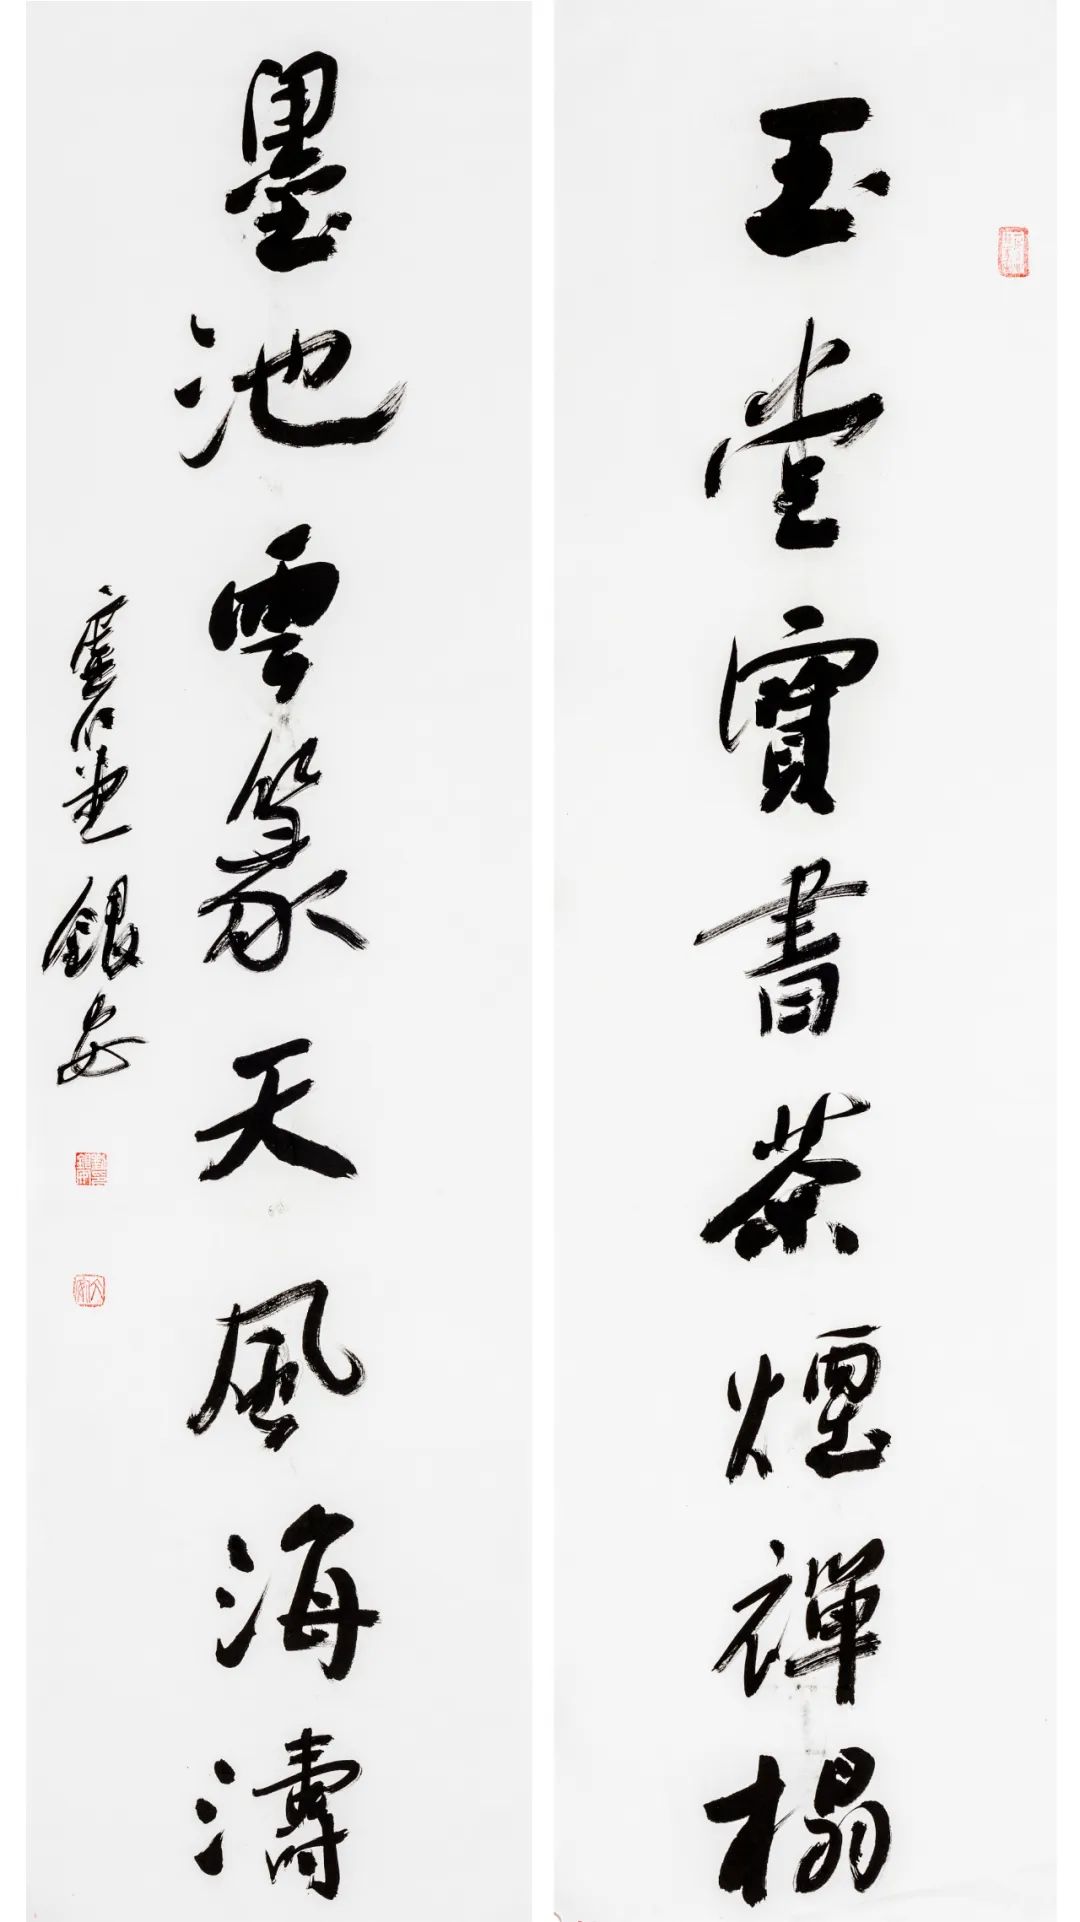 玉堂寶書茶煙禪榻
墨池雲篆天風海濤
銀安